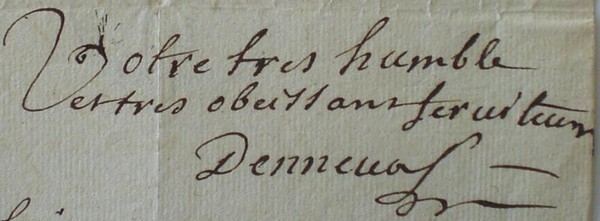 Votre tres humble
et tres obeissant serviteur
Denneval